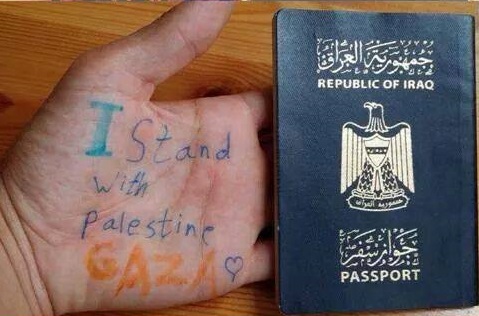 I Stand
with
Palestine
GAZA ♡
جمهورية العراق
REPUBLIC OF IRAQ
جمهورية العراق
جواز سفر
PASSPORT